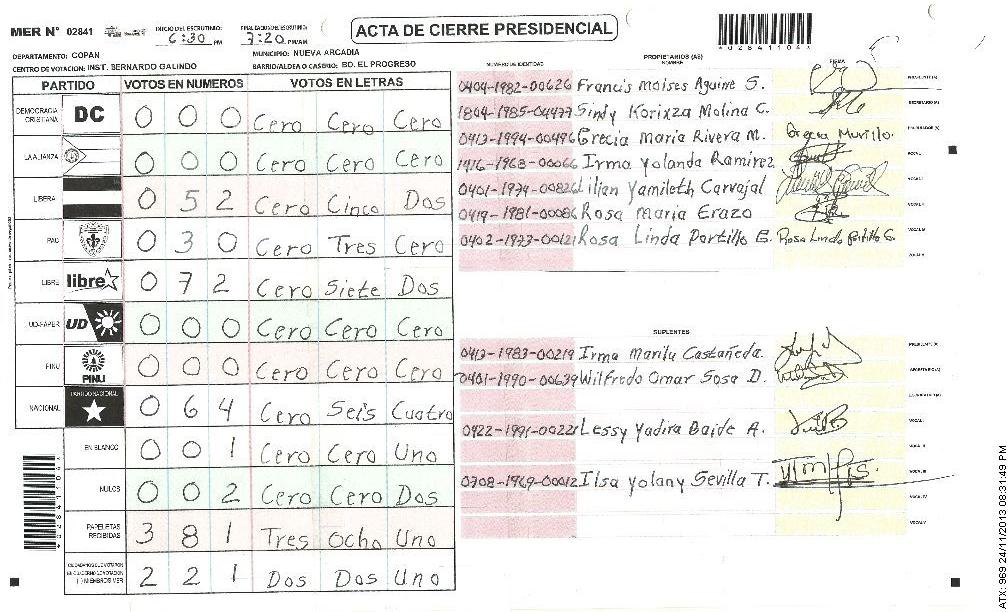 MER Nº 02841
INICIO DEL ESCRUTINIO: 6:30 PM
FINALIZACION DEL ESCRUTINIO: 7:20 PM/AM
ACTA DE CIERRE PRESIDENCIAL
DEPARTAMENTO: COPAN
MUNICIPIO: NUEVA ARCADIA
CENTRO DE VOTACION: INST. BERNARDO GALINDO
BARRIO/ALDEA O CASERIO: BO. EL PROGRESO
PARTIDO VOTOS EN NUMEROS VOTOS EN LETRAS
DEMOCRACIA CRISTIANA DC 0 0 0 Cero Cero Cero
LA ALIANZA 0 0 0 Cero Cero Cero
LIBERA 0 5 2 Cero Cinco Dos
PAC 0 3 0 Cero Tres Cero
LIBRE libre 0 7 2 Cero Siete Dos
UD-FAPER UD 0 0 0 Cero Cero Cero
PINU PINU 0 0 0 Cero Cero Cero
NACIONAL PARTIDO NACIONAL 0 6 4 Cero Seis Cuatro
EN BLANCO 0 0 1 Cero Cero Uno
NULOS 0 0 2 Cero Cero Dos
PAPELETAS RECIBIDAS 3 8 1 Tres Ocho Uno
2 2 1 Dos Dos Uno
*02841104*
PROPIETARIOS (AS)
NUMERO DE IDENTIDAD NOMBRE FIRMA
0404-1982-00626 Francis Moises Aguirre S.
1804-1985-04477 Sindy Korixza Molina C.
0413-1994-00496 Grecia Maria Rivera M. Grecia Murillo.
1416-1968-00066 Irma Yolanda Ramirez
0401-1974-00826 Lilian Yamileth Carvajal
0419-1981-00086 Rosa Maria Erazo
0402-1973-00121 Rosa Linda Portillo E. Rosa Linda Portillo E.
SUPLENTES
0413-1983-00219 Irma Marilu Castañeda.
0401-1990-00639 Wilfredo Omar Sosa D.
0422-1991-00221 Lessy Yadira Baide A.
0708-1969-00012 Ilsa Yolany Sevilla T.
ATX: 969 24/11/2013 08:31:49 PM